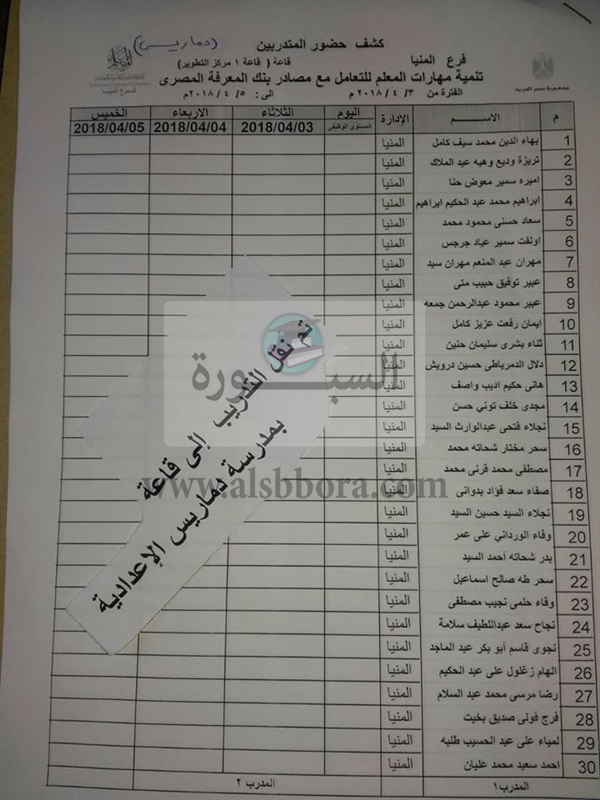 كشف حضور المتدربين (دماريس)
فرع المنيا قاعة ( قاعة ١ مركز التطوير)
تنمية مهارات المعلم للتعامل مع مصادر بنك المعرفة المصرى
الفترة من ٣ / ٤ / ٢٠١٨ م الى : ٥ / ٤ / ٢٠١٨ م
جمهورية مصر العربية
م الاســـم الإدارة اليوم الثلاثاء الاربعاء الخميس
المستوى الوظيفى 2018/04/03 2018/04/04 2018/04/05
1 بهاء الدين محمد سيف كامل المنيا
2 تريزة وديع وهبه عبد الملاك المنيا
3 اميره سمير معوض حنا المنيا
4 ابراهيم محمد عبد الحكيم ابراهيم المنيا
5 سعاد حسنى محمود محمد المنيا
6 اونفت سمير عياد جرجس المنيا
7 مهران عبد المنعم مهران سيد المنيا
8 عبير توفيق حبيب متى المنيا
9 عبير محمود عبدالرحمن جمعه المنيا
10 ايمان رفعت عزيز كامل المنيا
11 ثناء بشرى سليمان حنين المنيا
12 دلال الدمرياطى حسين درويش المنيا
13 هانى حكيم اديب واصف المنيا
14 مجدى خلف تونى حسن المنيا
15 نجلاء فتحى عبدالوارث السيد المنيا
16 سحر مختار شحاته محمد المنيا
17 مصطفى محمد قرنى محمد المنيا
18 صفاء سعد فؤاد بدوانى المنيا
19 نجلاء السيد حسين السيد المنيا
20 وفاء الوردانى على عمر المنيا
21 بدر شحاته أحمد السيد المنيا
22 سحر طه صالح اسماعيل المنيا
23 وفاء حلمى نجيب مصطفى المنيا
24 نجاح سعد عبداللطيف سلامة المنيا
25 نجوى قاسم أبو بكر عبد الماجد المنيا
26 الهام زغلول على عبد الحكيم المنيا
27 رضا مرسى محمد عبد السلام المنيا
28 فرج فولى صديق بخيت المنيا
29 لمياء على عبد الحسيب طلبه المنيا
30 احمد سعيد محمد عليان المنيا
المدرب ١ المدرب ٢
تم نقل التدريب إلى قاعة
بمدرسة دماريس الإعدادية
السبورة
www.alsbbora.com